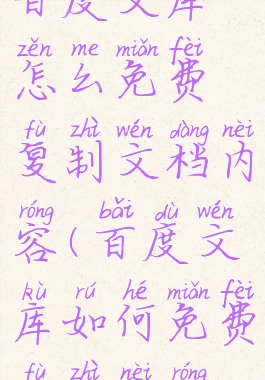 百度文库
zěn me miǎn fèi
怎么免费
fù zhì wén dàng nèi
复制文档内
róng bǎi dù wén
容(百度文
kù rú hé miǎn fèi
库如何免费
fù zhì nèi róng